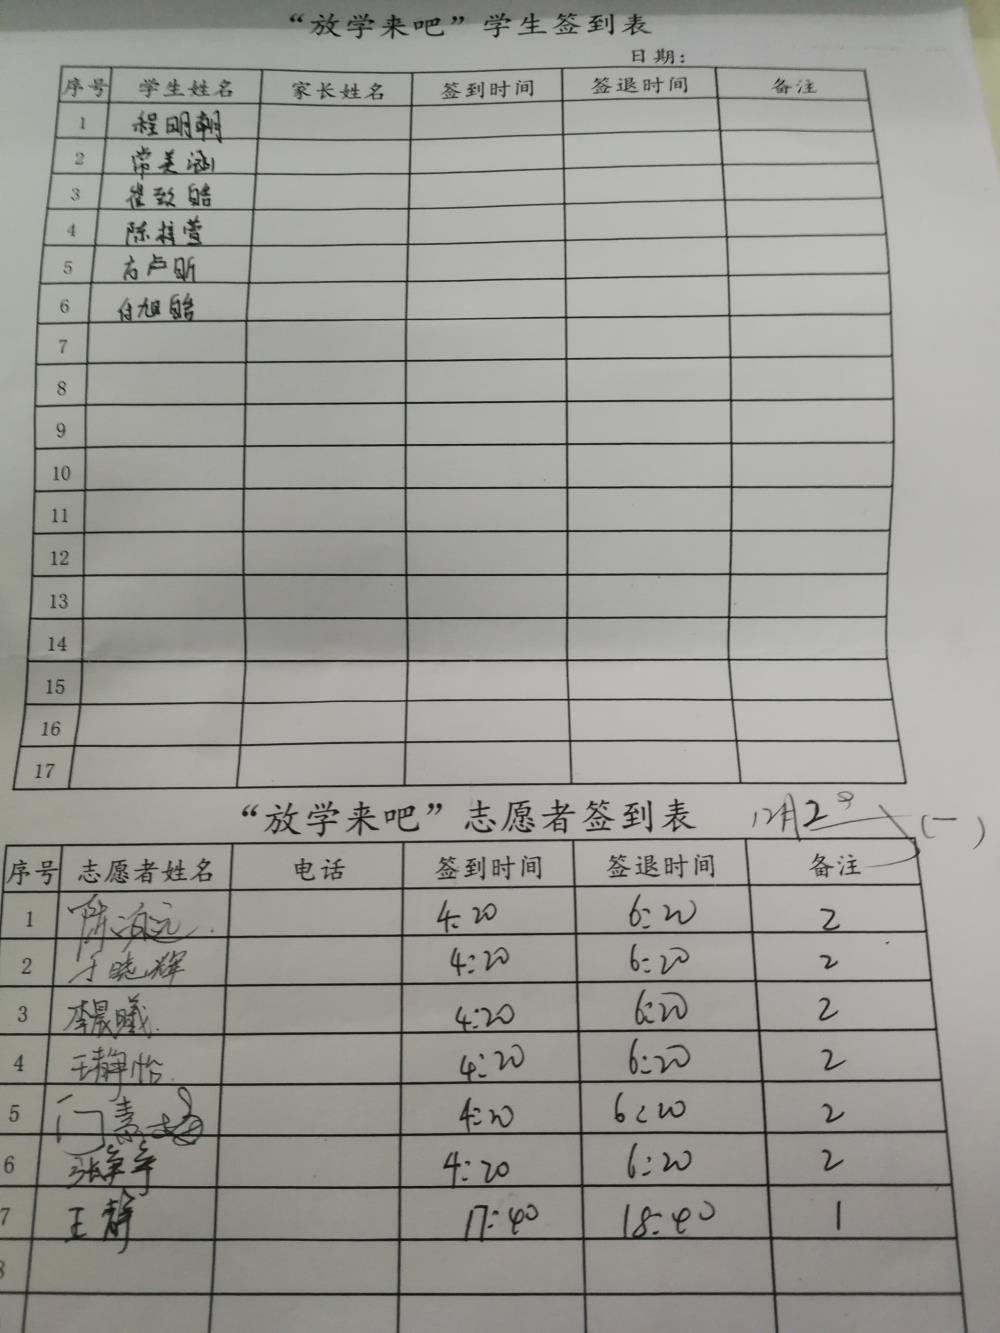 “放学来吧”学生签到表
日期:
序号 学生姓名 家长姓名 签到时间 签退时间 备注
1 程明朝
2 常美涵
3 崔致皓
4 陈梓萱
5 方卢昕
6 付旭皓
7
8
9
10
11
12
13
14
15
16
17
“放学来吧”志愿者签到表 12月2号 (一)
序号 志愿者姓名 电话 签到时间 签退时间 备注
1 陈海远 4:20 6:20 2
2 于晓辉 4:20 6:20 2
3 李晨曦 4:20 6:20 2
4 王静怡 4:20 6:20 2
5 门 4:20 6:20 2
6 张 4:20 6:20 2
7 王静 17:40 18:40 1
8